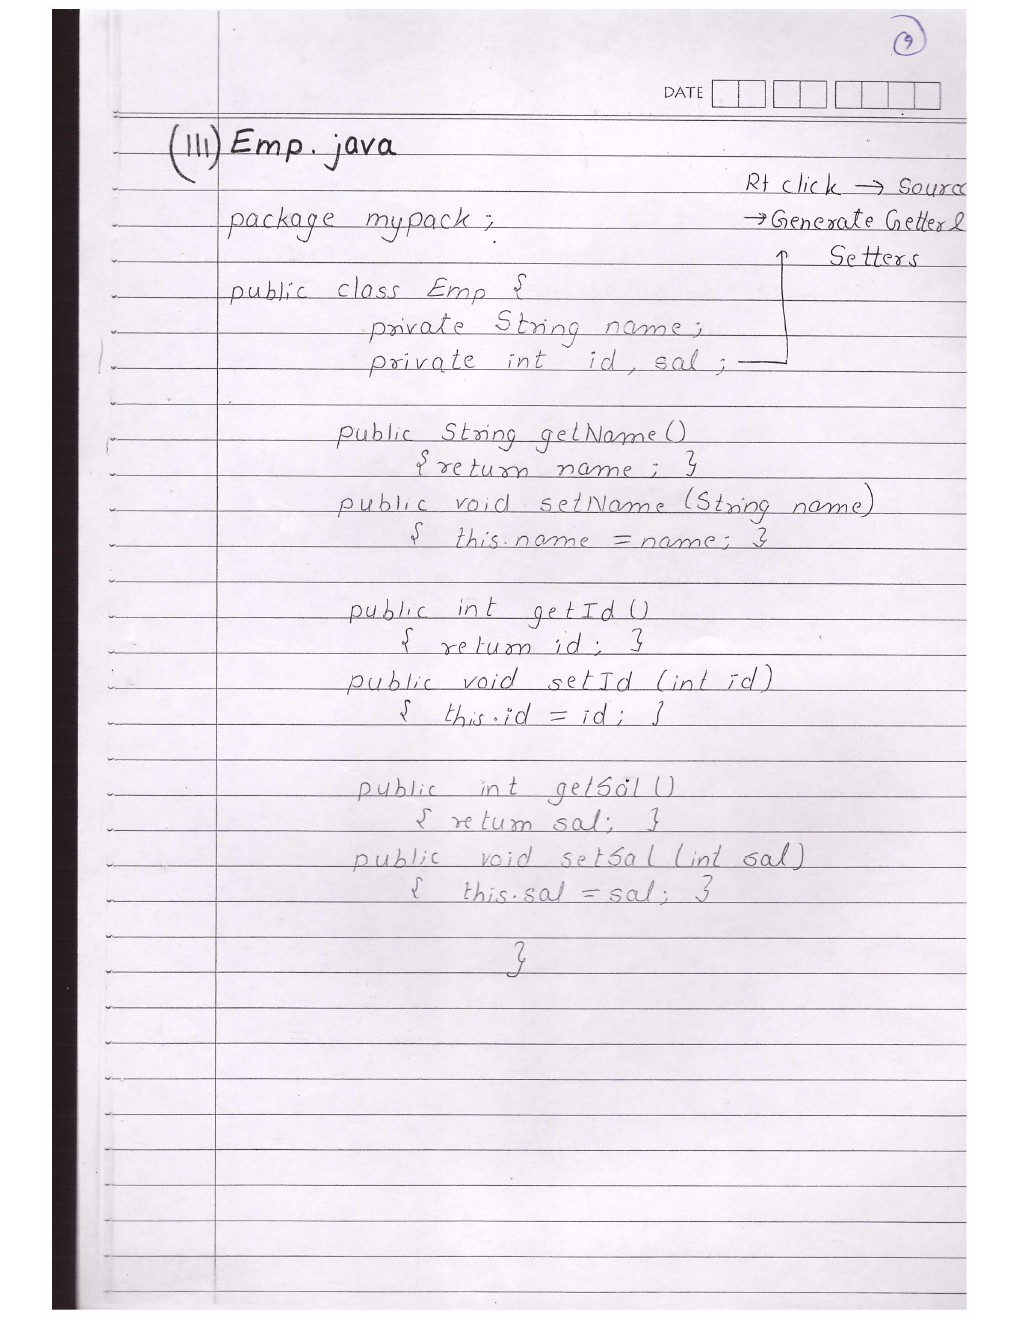 9
DATE
(III) Emp.java
Rt click → Source
→ Generate Getter &
Setters
package mypack;
public class Emp {
private String name;
private int id, sal;
public String getName()
{ return name; }
public void setName (String name)
{ this.name = name; }
public int getId ()
{ return id; }
public void setId (int id)
{ this.id = id; }
public int getSal ()
{ return sal; }
public void setSal (int sal)
{ this.sal = sal; }
}